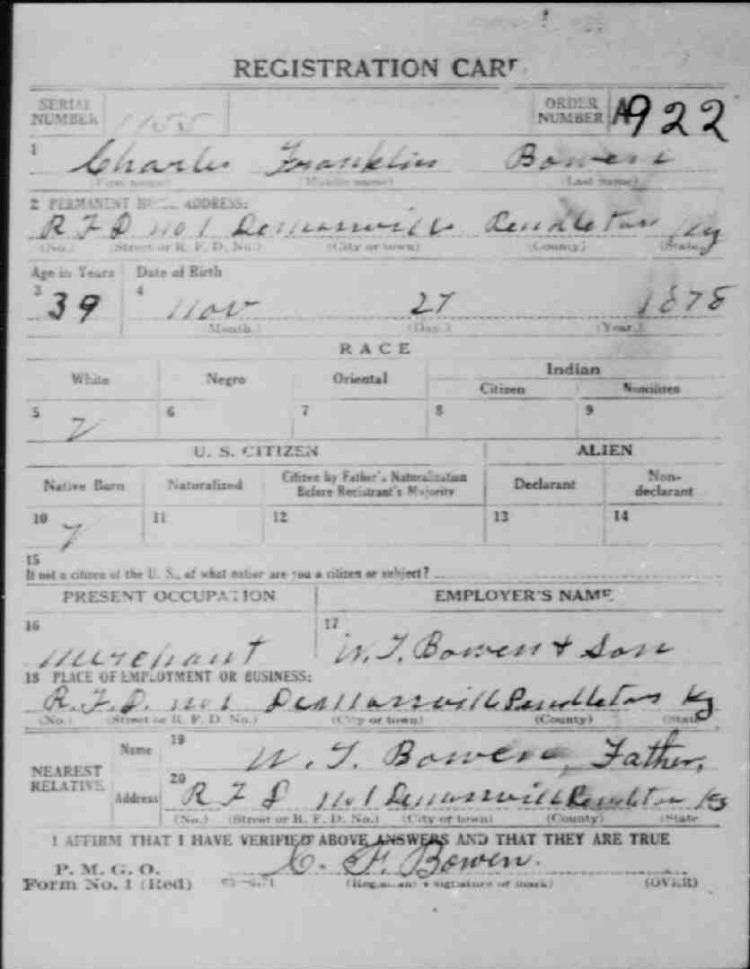 REGISTRATION CARD
SERIAL NUMBER 1155 ORDER NUMBER A922
1 Charles Franklin Bowen
(First name) (Middle name) (Last name)
2 PERMANENT HOME ADDRESS:
R F D no 1 Demossville Pendleton Ky
(No.) (Street or R. F. D. No.) (City or town) (County) (State)
Age in Years Date of Birth
3 39 4 Nov 27 1878
(Month.) (Day.) (Year.)
RACE
White Negro Oriental Indian
Citizen Noncitizen
5 6 7 8 9
U. S. CITIZEN ALIEN
Native Born Naturalized Citizen by Father's Naturalization Before Registrant's Majority Declarant Non-declarant
10 11 12 13 14
15
If not a citizen of the U. S., of what nation are you a citizen or subject?
PRESENT OCCUPATION EMPLOYER'S NAME
16 merchant 17 W. T. Bowen & Son
18 PLACE OF EMPLOYMENT OR BUSINESS:
R. F. D. no 1 DeMossville Pendleton Ky
(No.) (Street or R. F. D. No.) (City or town) (County) (State)
NEAREST RELATIVE Name 19 W. T. Bowen, Father,
Address 20 R F D no 1 Demossville Pendleton Ky
(No.) (Street or R. F. D. No.) (City or town) (County) (State
I AFFIRM THAT I HAVE VERIFIED ABOVE ANSWERS AND THAT THEY ARE TRUE
P. M. G. O.
Form No. 1 (Red) C. F. Bowen.
(Registrant's signature or mark) (OVER)